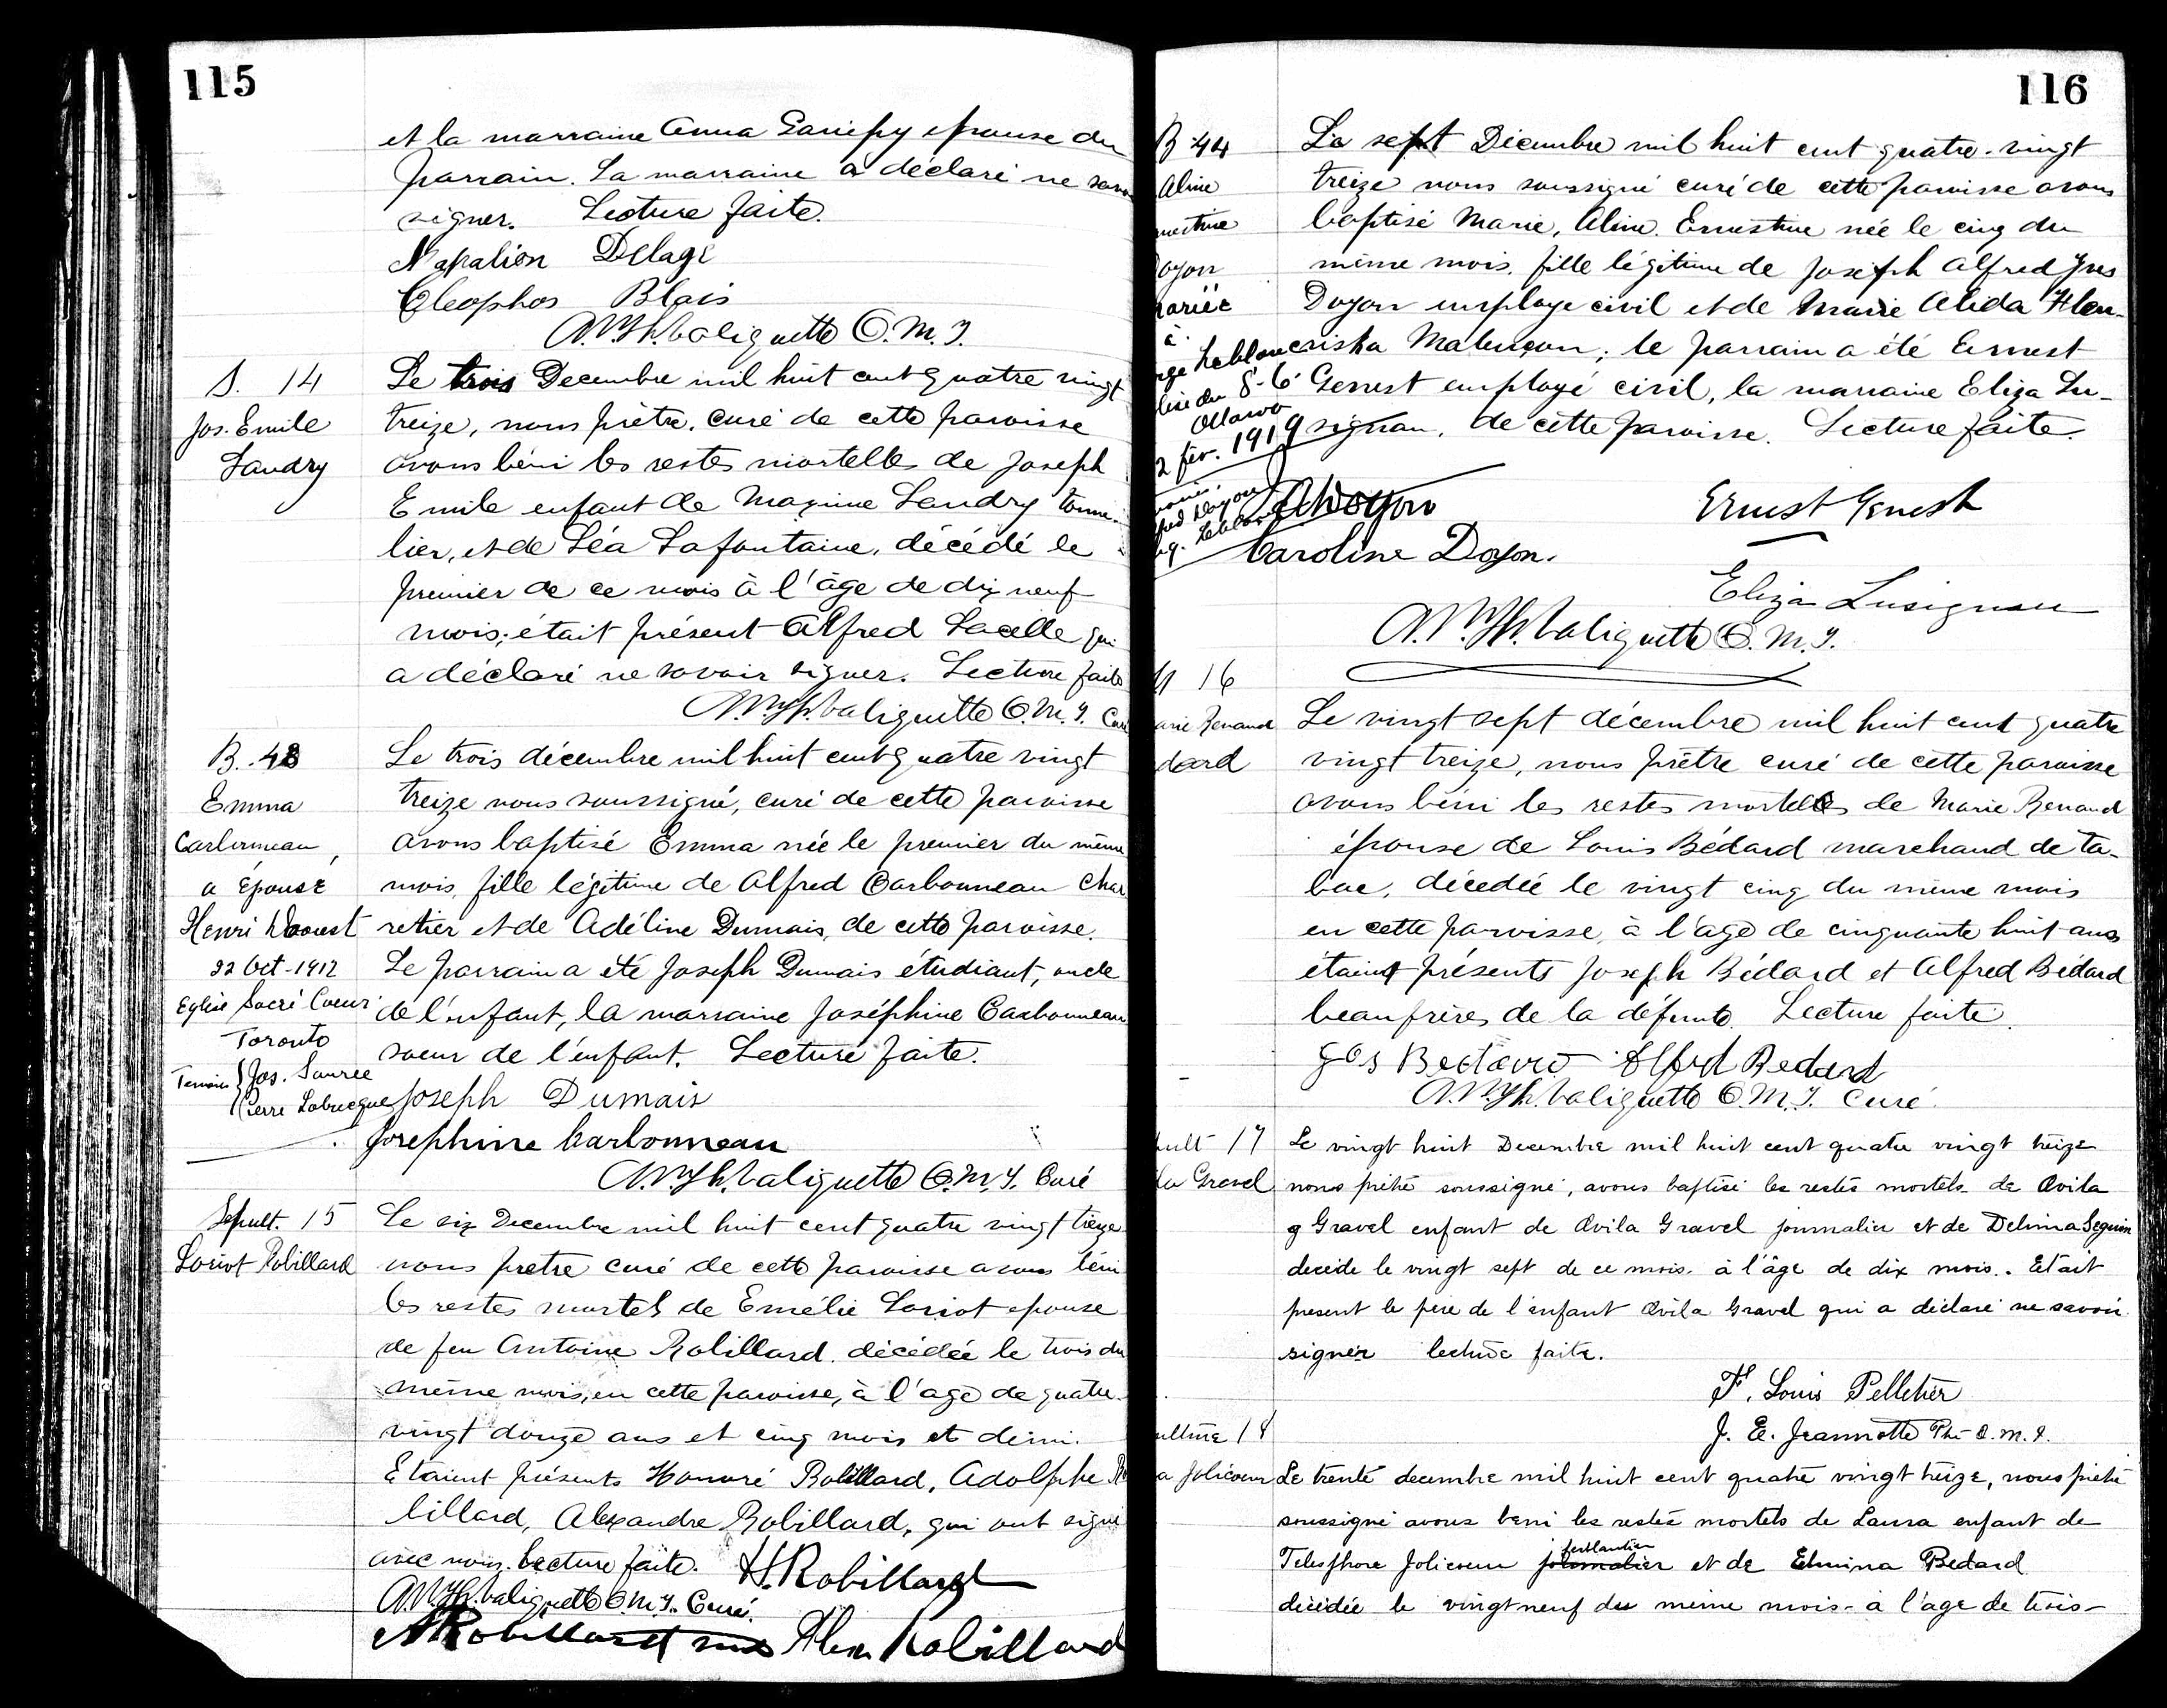 115
et la marraine Anna Gariepy epouse du
parrain. La marraine a déclaré ne savoir
signer. Lecture faite.
Napalion Delage
Cleophos Blais
A.M.Th. Valiquette O.M.I.
S. 14
Jos. Emile
Landry
Le trois Decembre mil huit cent quatre vingt
treize, nous prêtre, curé de cette paroisse
avons béni les restes mortelles de Joseph
Emile enfant de Maxime Landry tonne-
lier, et de Léa Lafontaine, décédé le
premier de ce mois à l'âge de dix neuf
mois; était présent Alfred Lacelle qui
a déclaré ne savoir signer. Lecture faite
Valiquette O.M.I. Curé
B. 43
Emma
Carbonneau,
a Épousé
Henri Daoust
22 Oct - 1912
Eglise Sacré Coeur
Toronto
Temoins { Jos. Sauree
Pierre Labrecque
Le trois décembre mil huit cent quatre vingt
treize nous soussigné, curé de cette paroisse
avons baptisé Emma née le premier du même
mois, fille légitime de Alfred Carbonneau char
retier et de Adéline Dumais, de cette paroisse.
Le parrain a été Joseph Dumais étudiant, oncle
de l'enfant, la marraine Joséphine Carbonneau
soeur de l'enfant. Lecture faite.
Joseph Dumais
Josephine Carbonneau
Valiquette O.M.I. Curé
Sepult. 15
Loriot Robillard
Le six Decembre mil huit cent quatre vingt treize
nous pretre curé de cette paroisse avons béni
les restes mortels de Emélie Loriot epouse
de feu Antoine Robillard. décédée le trois du
même mois, en cette paroisse, à l'age de quatre
vingt douze ans et cinq mois et demi.
Etaient présents Honoré Robillard, Adolphe Ro
billard, Alexandre Robillard, qui ont signé
avec nous. Lecture faite. H. Robillard
Valiquette O.M.I. Curé.
A Robillard Alex Robillard
116
B 44
Aline
nestine
Doyon
mariée
à
Leblanc
Ottawa
2 fév. 1919
Le sept Décembre mil huit cent quatre-vingt
treize nous soussigné curé de cette paroisse avons
baptisé Marie, Aline. Ernestine née le cinq du
même mois. fille légitime de Joseph Alfred Yves
Doyon employe civil et de Marie Alida Hen-
Malençon; le parrain a été Ernest
Genest employé civil, la marraine Eliza Lu-
signan, de cette paroisse. Lecture faite.
Doyon
Ernest Genest
Caroline Doyon.
Eliza Lusignan
Valiquette O.M.I.
S 16
arie Renaud
dard
Le vingt sept décembre mil huit cent quatre
vingt treize, nous prêtre curé de cette paroisse
avons béni les restes mortelles de Marie Renaud
épouse de Louis Bédard marchand de ta-
bac, décédée le vingt cinq du même mois
en cette paroisse, à l'âge de cinquante huit ans
étaient présents Joseph Bédard et Alfred Bédard
beaufrères de la défunte. Lecture faite.
Jos Bedard Alfred Bedard
Valiquette O.M.I. Curé.
pult 17
la Gravel
Le vingt huit Decembre mil huit cent quatre vingt treize
nous prêtre soussigné, avons baptisé les restes mortels de Ovila
g Gravel enfant de Ovila Gravel journalier et de Delima Seguin
decede le vingt sept de ce mois. à l'âge de dix mois. Etait
present le père de l'enfant Ovila Gravel qui a déclaré ne savoir
signer lecture faite.
F. Louis Pelletier
J. E. Jeannotte Ptre O.M.I.
ulture 18
a Jolicoeur
Le trente decembre mil huit cent quatre vingt treize, nous prêtre
soussigné avons beni les restes mortels de Laura enfant de
ferblantier
Telesphore Jolicoeur journalier et de Elmina Bedard
décédée le vingt neuf du même mois - à l'age de trois -